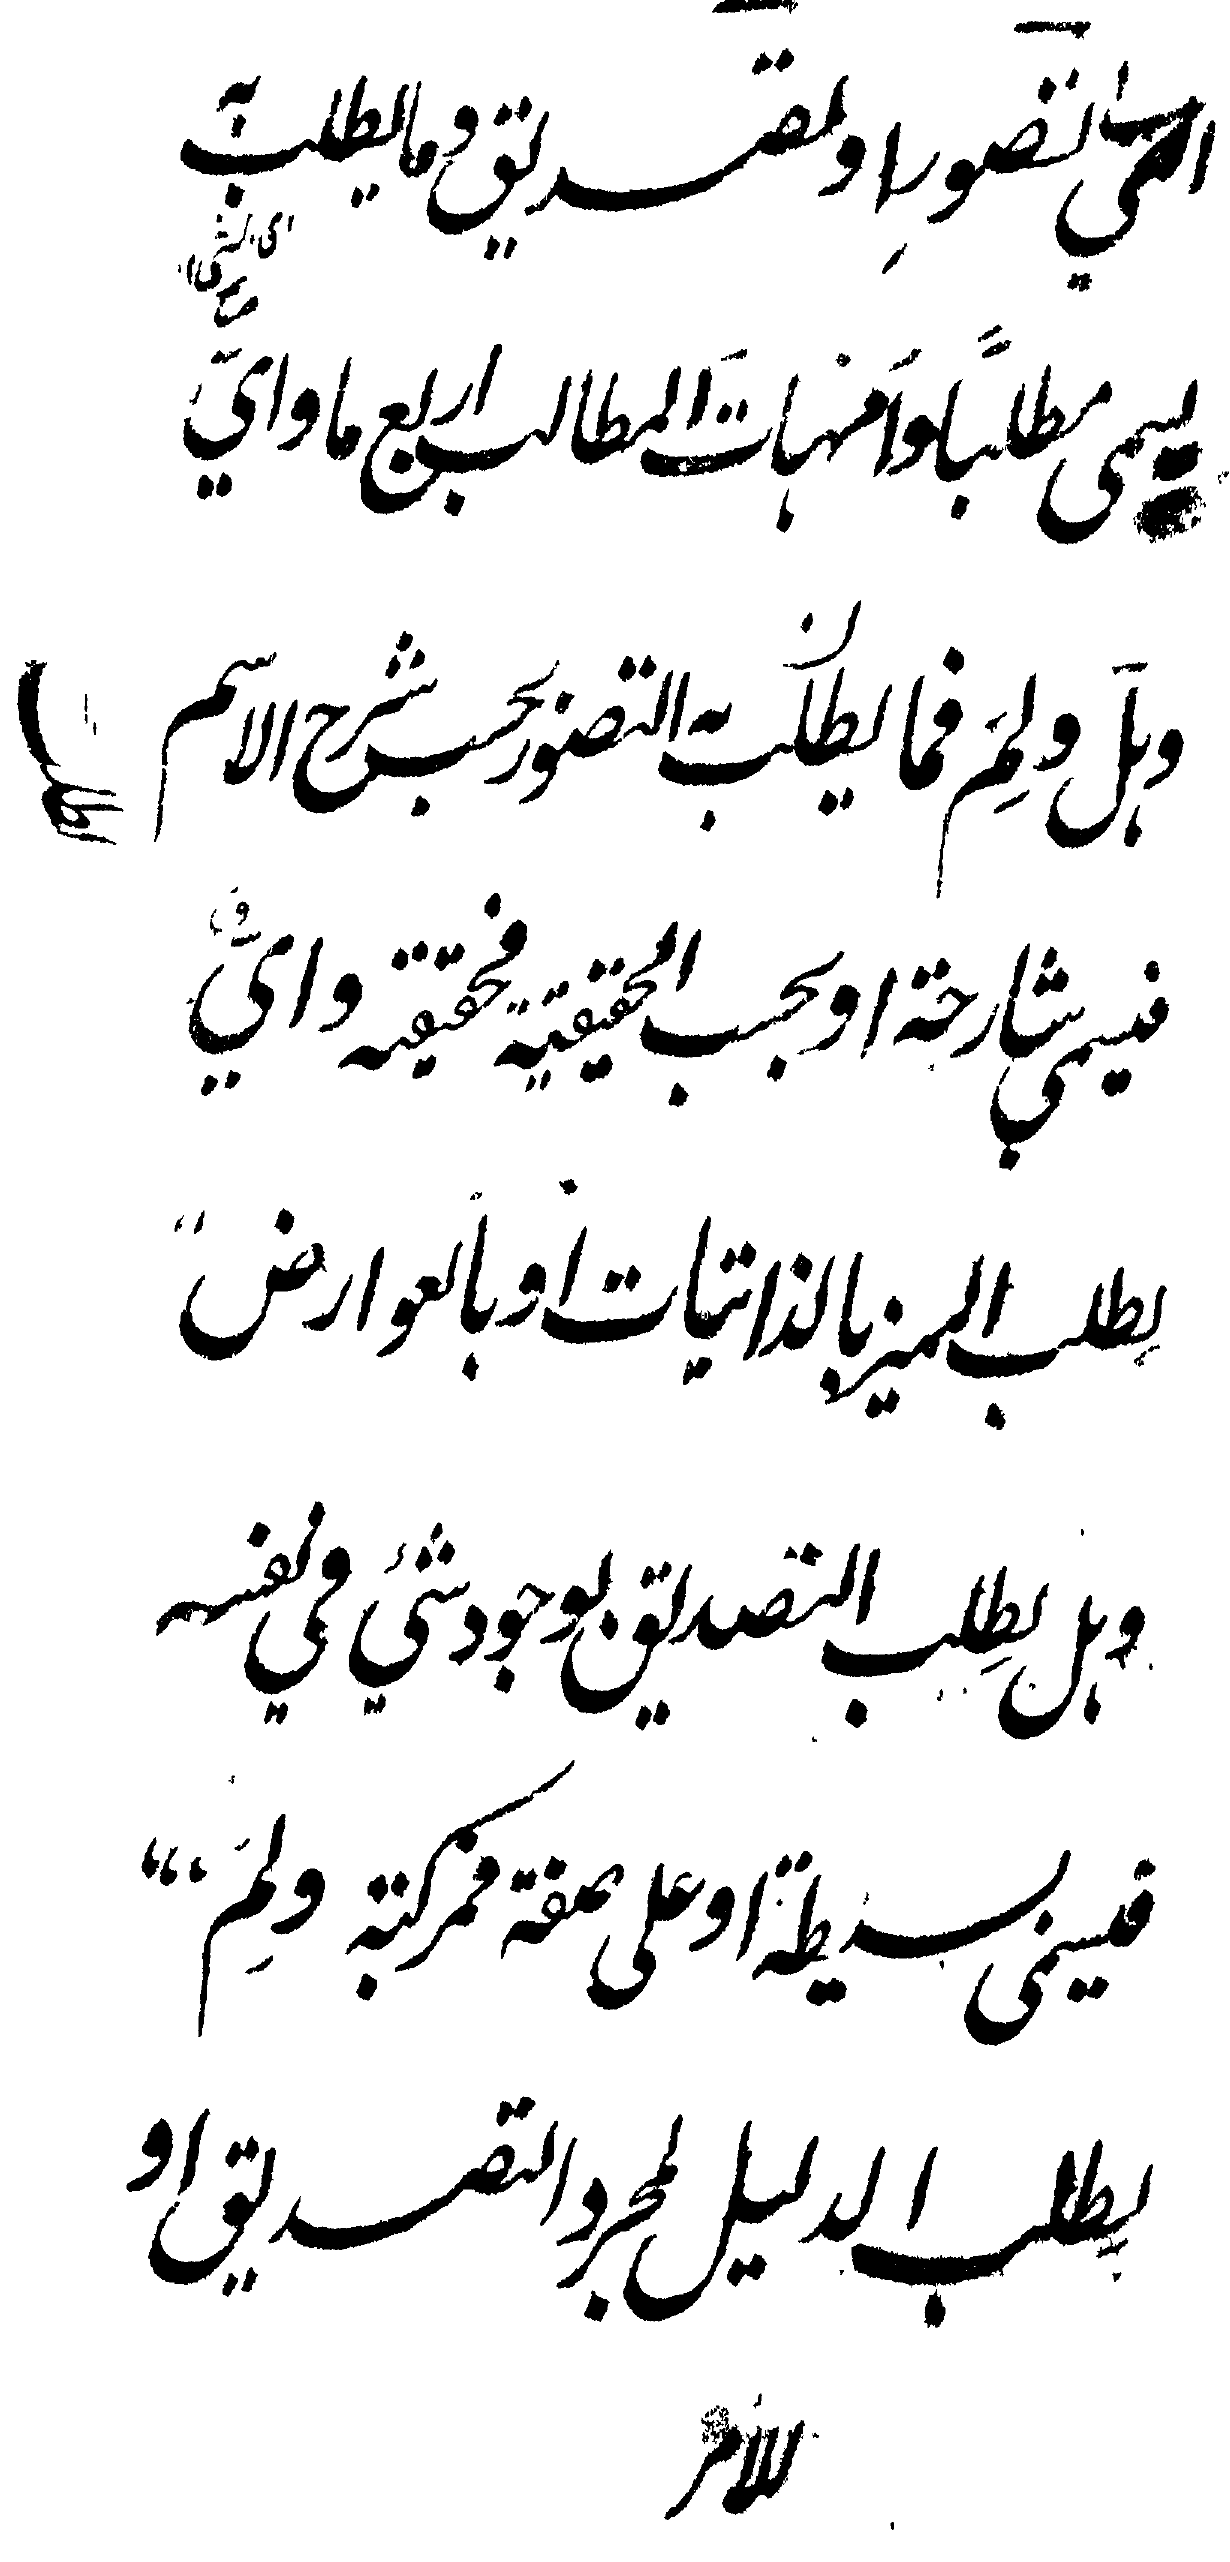 التصور او تصديق وما يطلب به
يسمى مطلبا وامهات المطالب اربع ما واي
وهل ولم فما يطلب به التصور بحسب شرح الاسم
فيسمى شارحة او بحسب الحقيقة فحقيقية واي
يطلب المميز بالذاتيات او بالعوارض
وهل يطلب التصديق بوجود شئ في نفسه
فيسمى بسيطة او على صفة فمركبة ولم
يطلب الدليل لمجرد التصديق او
للامر